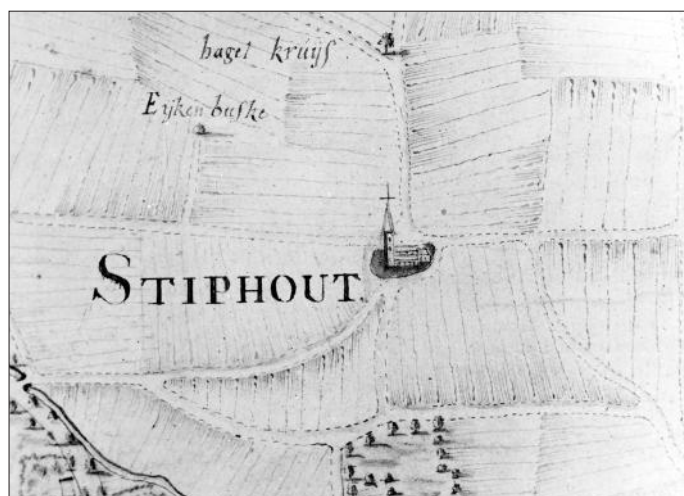 hagel kruijs
Eijken buske
STIPHOUT